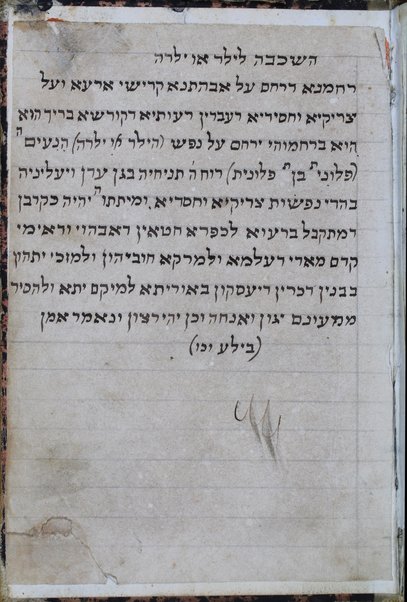 השכבה לילד או ילדה
רחמנא דרחם על אבהתנא קדישי ארעא ועל
צדיקיא וחסידיא דעבדין רעותיא דקודשא בריך הוא
הוא ברחמוהי ירחם על נפש (הילד או ילדה) הנעים ה
(פלוני ת בן ת פלונית) רוח ה תניחיה בגן עדן ויעליניה
בהדי נפשות צדיקיא וחסדיא. ומיתתו ה יהיה כקרבן
דמתקבל ברעוא לכפרא חטאין דאבהוי ודאימי
קדם מארי דעלמא ולמרקא חוביהין ולמזכי יתהון
בבנין דכרין דיעסקון באוריתא למיקם יתא ולהסיר
ממעונם יגון ואנחה וכן יהי רצון ונאמר אמן
(בילע וכו)